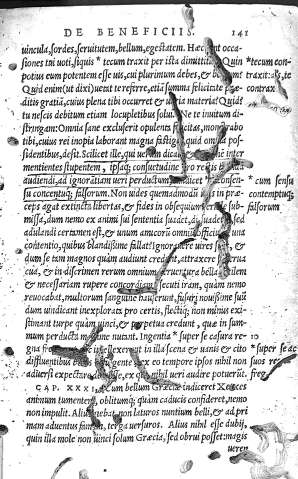 DE BENEFICIIS. 141
uincula, sordes, seruitutem, bellum, egestatem. Hæc sunt occa-
siones tui uoti, siquis * tecum traxit per ista dimittitur. Quin * tecum con-
potius eum potentem esse uis, cui plurimum debes, & traxit: als, te
Quid enim (ut dixi) uetat te referre, etiā summa felicitate præ- contrax
ditis gratiā, cuius plena tibi occurret & materia! Quid tu
nescis debitum etiam locupletibus solui? Ne te inuitum di-
stringam: Omnia sane excluserit opulenta felicitas, monstrabo
tibi, cuius rei inopia laborent magna fastigia, quid omnia pos-
sidentibus, desit. Scilicet ille, qui uerum dicat, inter
mentientes stupentem, ipsaq; consuetudine pro rectis
audiendi, ad ignorātiam ueri perductum * consen- * cum sensu
su concentuq; falsorum. Non uides quemadmodum in præ- contemptuq;
ceps agat extincta libertas, & fides in obsequium sub- falsorum
missa, dum nemo ex animi sui sententia suadet, sed
adulandi certamen est, & unum amicorum omnium officium, una
contentio, quis blandissime fallat! Ignorauere uires suas, &
dum se tam magnos quàm audiunt credunt, attraxere super-
uacua, & in discrimen rerum omnium bella utilem
& necessariam rupere concordiam secuti iram, quàm nemo
reuocabat, multorum sanguinē hauserunt, fusuri nouissime suū
dum uindicant inexplorata pro certis, flectiq; non minus exi-
stimant turpe quàm uinci, & perpetua credunt, quæ in sum-
mum perducta maxime nutant. Ingentia * super se casura re- 10
gna non intellexerunt in illa scena & uanis & cito * super se ac
diffluentibus ex eo tempore ipsos nihil non suos re
aduersi expectare esse, ex quo nihil ueri audire potuerūt. freg.
CAP. XXXI. Cum bellum Græciæ indiceret Xerxes
animum tumentem, oblitumq; quàm caducis confideret, nemo
non impulit. Alius aiebat, non laturos nuntium belli, & ad pri-
mam aduentus famam, terga uersuros. Alius nihil esse dubij,
quin illa mole non uinci solum Græcia, sed obrui posset: magis
ueren